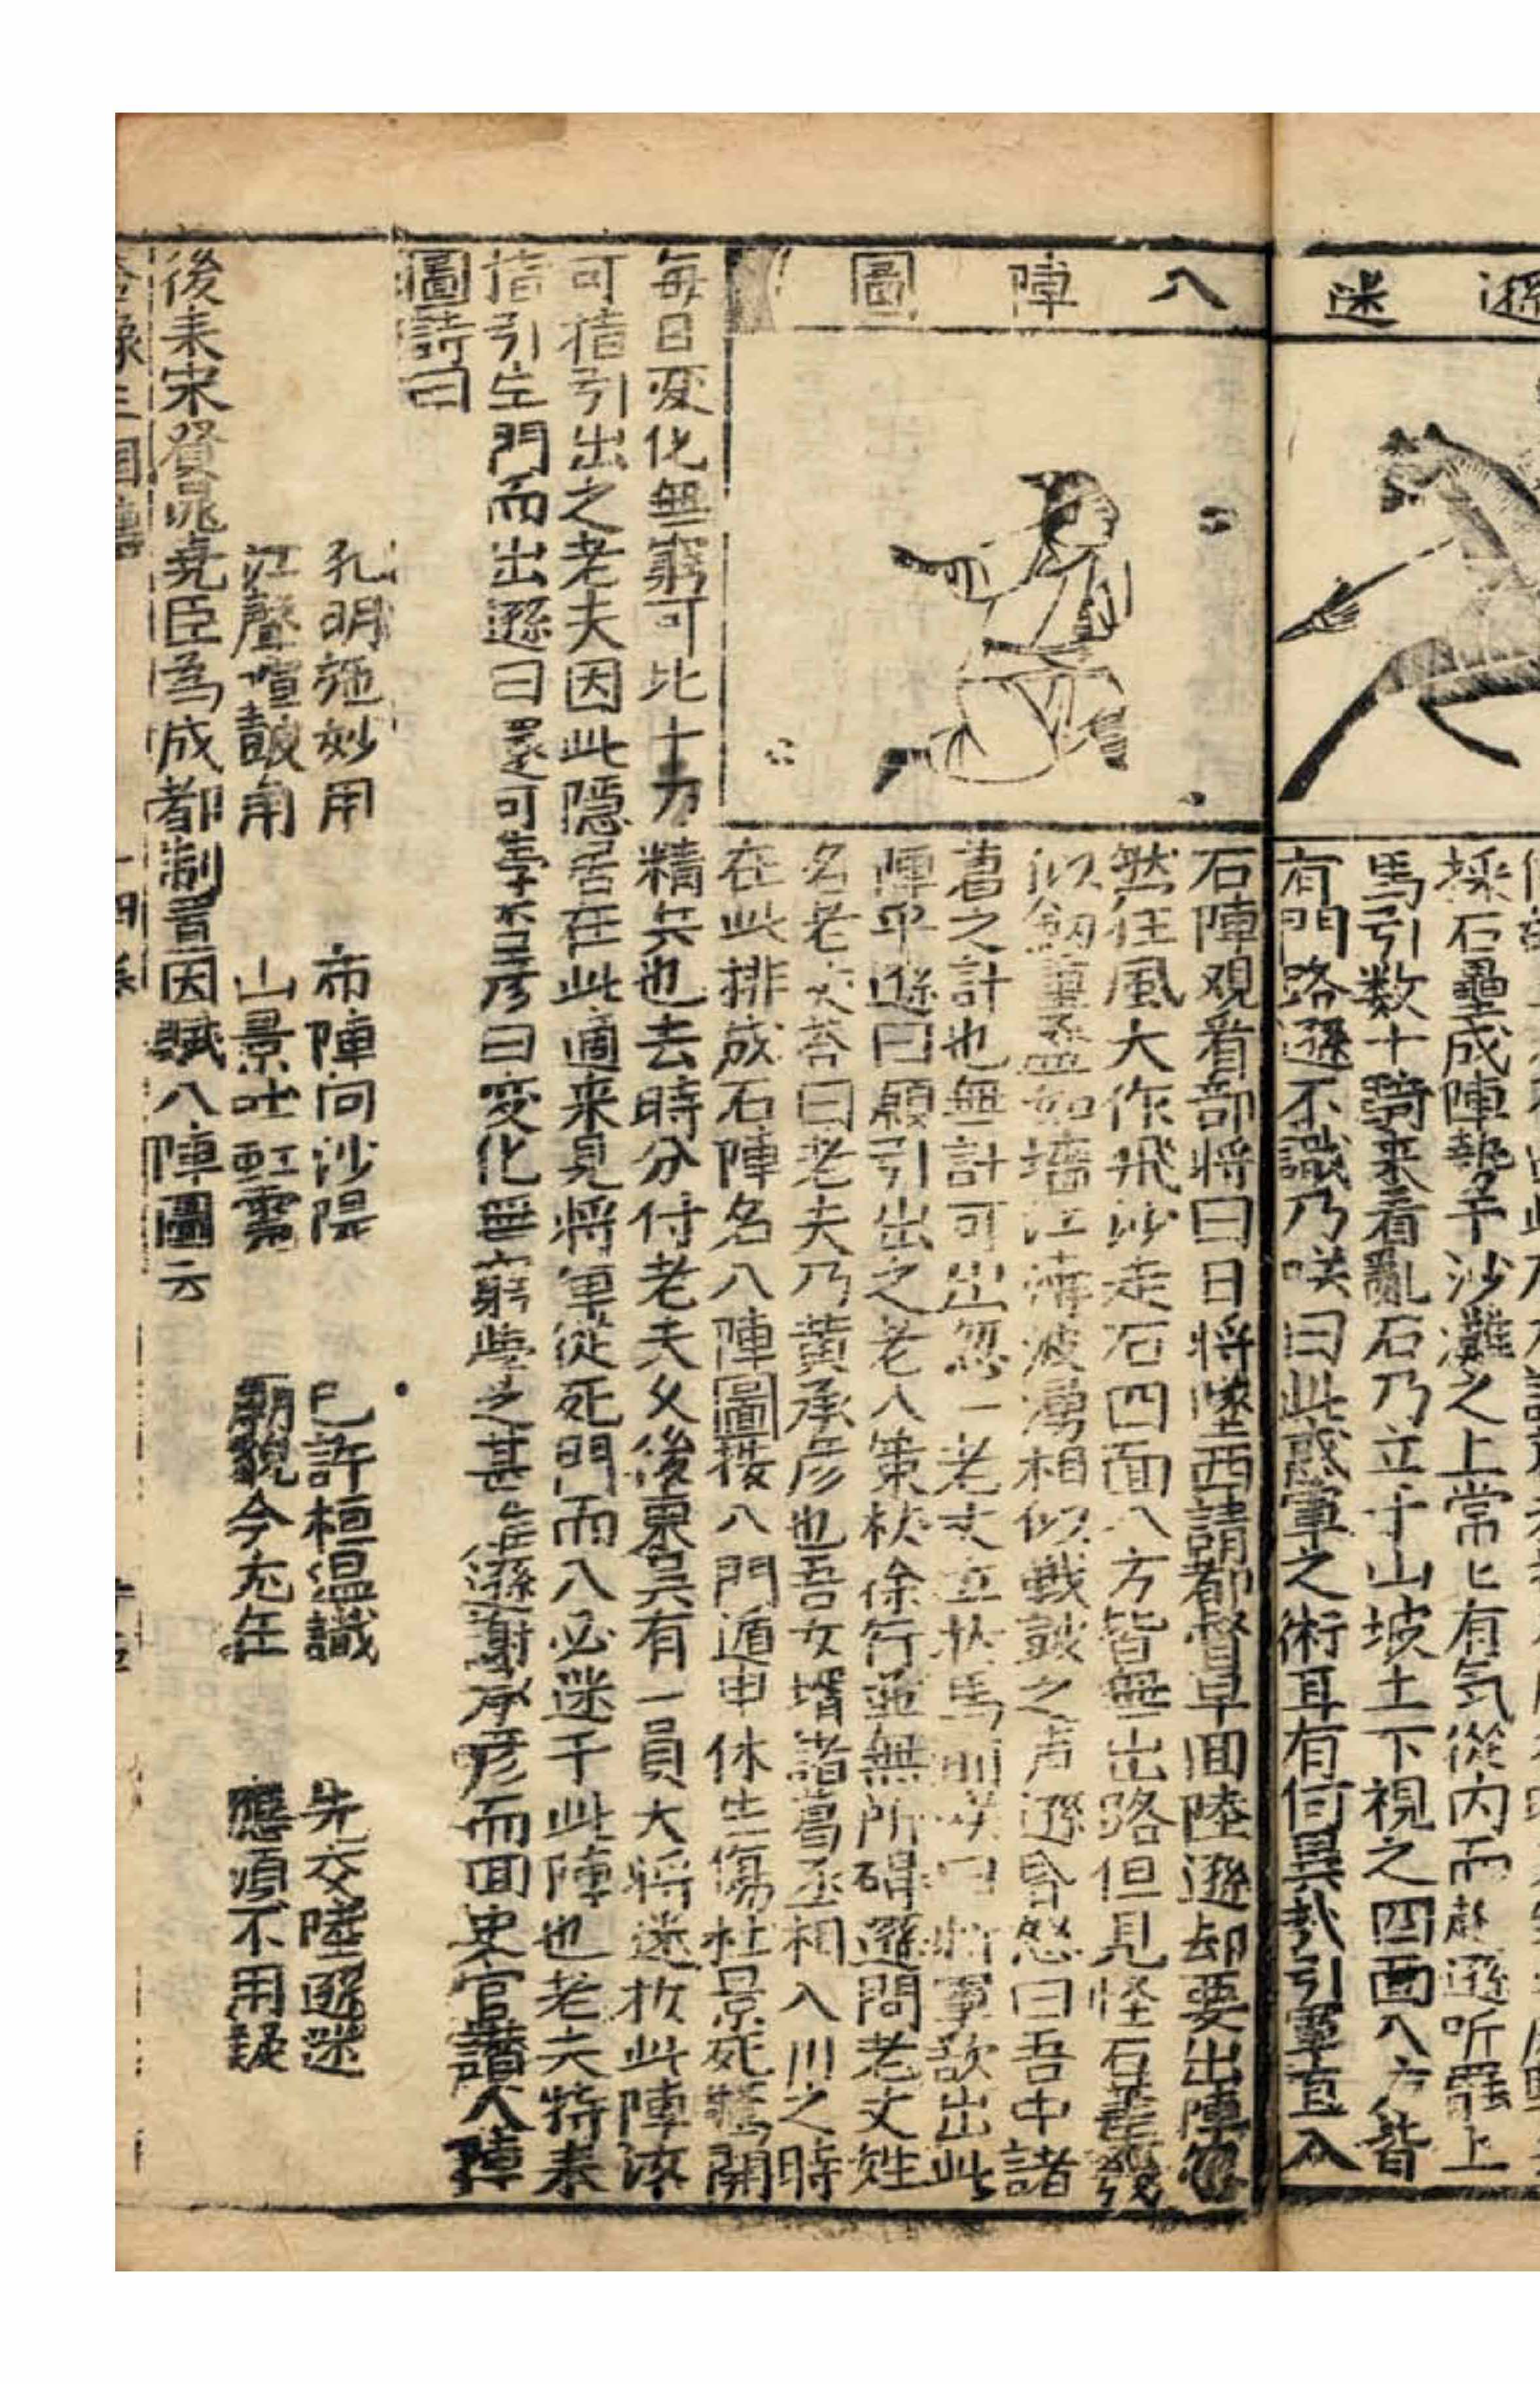 遜迷
採石壘成陣勢于沙灘之上常匕有気從内而起遜听罷上
馬引数十騎来看亂石乃立于山坡土下視之四面八方皆
有門路遜不識乃咲曰此惑軍之術耳有何異哉引軍直入
八陣圖
石陣观看部将曰日将墜西請都督早囬陸遜却要出陣忽
然狂風大作飛沙走石四面八方皆無出路但見怪石
似劍重疊如墻江濤波湧相似戦皷之声遜曰吾中諸
葛之計也無計可出忽一老丈立扵馬前咲曰将軍欲出此
陣乎遜曰願引出之老人策杖徐行並無所碍遜問老丈姓
名老丈荅曰老夫乃黄承彦也吾女壻諸葛丞相入川之時
在此排成石陣名八陣圖按八門遁甲休生傷杜景死驚開
每日変化無窮可比十万精兵也去時分付老夫父後東吳有一員大将迷扵此陣
可指引出之老夫因此隱居在此適来見将軍從死門而入必迷于此陣也老夫特来
指引生門而出遜曰還可李不彦曰変化無窮之甚遜謝承彦而囬史官讃八陣
圖詩曰
孔明施妙用 布陣向沙隄 已許桓温識 先交陸遜迷
江聲喧皷角 山景吐虹霓 廟貌今尤在 應須不用疑
後来宋賢晁堯臣為成都制置因賦八陣圖云